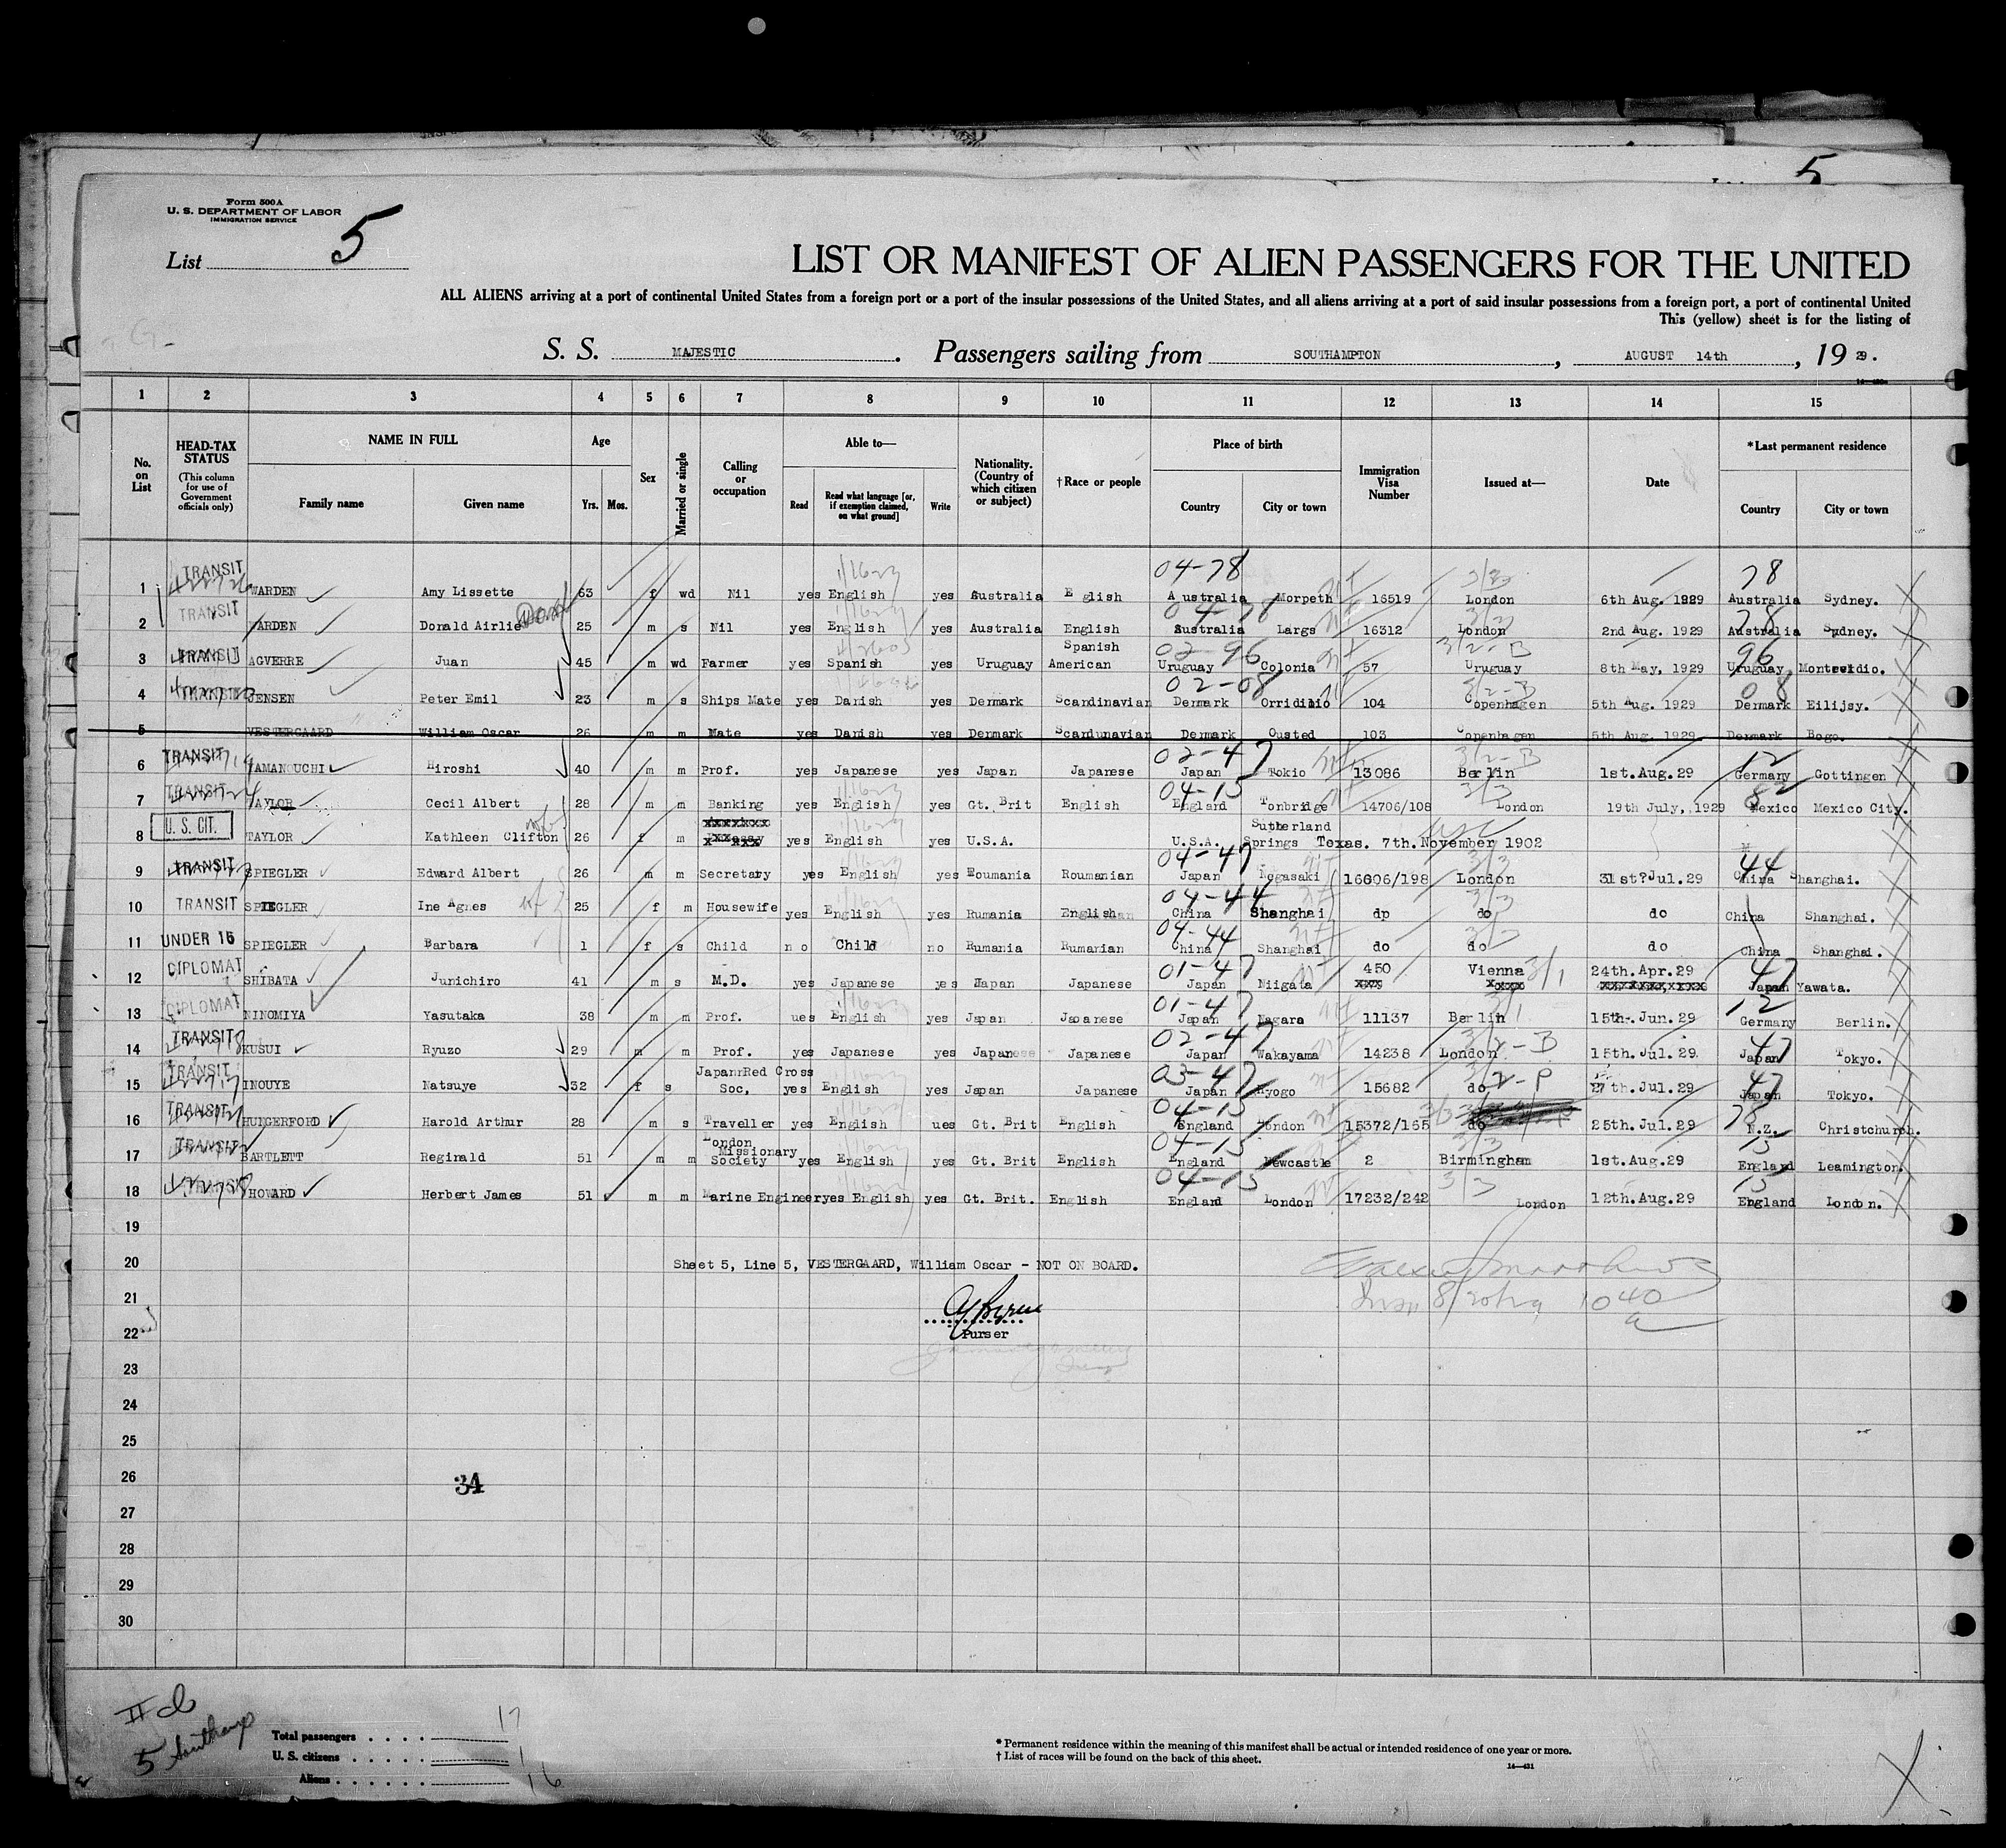 5
Form 500 A
U. S. DEPARTMENT OF LABOR
IMMIGRATION SERVICE
List 5
LIST OR MANIFEST OF ALIEN PASSENGERS FOR THE UNITED
ALL ALIENS arriving at a port of continental United States from a foreign port or a port of the insular possessions of the United States, and all aliens arriving at a port of said insular possessions from a foreign port, a port of continental United
This (yellow) sheet is for the listing of
S. S. MAJESTIC. Passengers sailing from SOUTHAMPTON, AUGUST 14th, 19 29.
1 2 3 4 5 6 7 8 9 10 11 12 13 14 15
No. on List
HEAD-TAX STATUS (This column for use of Government officials only)
NAME IN FULL
Family name
Given name
Age
Yrs. Mos.
Sex
Married or single
Calling or occupation
Able to—
Read
Read what language [or, if exemption claimed, on what ground]
Write
Nationality. (Country of which citizen or subject)
†Race or people
Place of birth
Country
City or town
Immigration Visa Number
Issued at—
Date
*Last permanent residence
Country
City or town
04-78 78
1 TRANSIT WARDEN Amy Lissette 63 f wd Nil yes English yes Australia E glish Australia Morpeth 16519 London 6th Aug. 1929 Australia Sydney.
04-78 78
2 TRANSIT WARDEN Donald Airlie 25 m s Nil yes English yes Australia English Australia Largs 16312 London 2nd Aug. 1929 Australia Sydney.
02-96 3/2-B 96
3 TRANSIT AGVERRE Juan 45 m wd Farmer yes Spanish yes Uruguay Spanish American Uruguay Colonia 57 Uruguay 8th May, 1929 Uruguay Montevidio.
02-08 3/2-B 08
4 TRANSIT JENSEN Peter Emil 23 m s Ships Mate yes Danish yes Denmark Scandinavian Denmark Orridilio 104 Copenhagen 5th Aug. 1929 Denmark Eilijsy.
5 VESTERGAARD William Oscar 26 m m Mate yes Danish yes Denmark Scandunavian Denmark Ousted 103 Copenhagen 5th Aug. 1929 Denmark Bogo.
02-47 3/2-B 12
6 TRANSIT YAMANOUCHI Hiroshi 40 m m Prof. yes Japanese yes Japan Japanese Japan Tokio 13086 Berlin 1st.Aug.29 Germany Gottingen
04-15 3/3 82
7 TRANSIT TAYLOR Cecil Albert 28 m m Banking yes English yes Gt. Brit English England Tonbridge 14706/108 London 19th July, 1929 Mexico Mexico City.
8 U. S. CIT. TAYLOR Kathleen Clifton 26 f m yes English yes U.S.A. U.S.A. Sutherland Springs Texas. 7th. November 1902
04-47 3/3 44
9 TRANSIT SPIEGLER Edward Albert 26 m m Secretary yes English yes Roumania Roumanian Japan Nogasaki 16606/198 London 31st?Jul.29 China Shanghai.
04-44 3/3
10 TRANSIT SPIEGLER Ine Agnes 25 f m Housewife yes English yes Rumania English China Shanghai dp do do China Shanghai.
04-44
11 UNDER 16 SPIEGLER Barbara 1 f s Child no Child no Rumania Rumanian China Shanghai do do do China Shanghai.
01-47 3/1 47
12 DIPLOMAT SHIBATA Junichiro 41 m s M.D. yes Japanese yes Japan Japanese Japan Niigata 450 Vienna 24th.Apr.29 Japan Yawata.
01-47 12
13 DIPLOMAT NINOMIYA Yasutaka 38 m m Prof. ues English yes Japan Japanese Japan Nagara 11137 Berlin 15th. Jun.29 Germany Berlin.
02-47 2-B 47
14 TRANSIT KUSUI Ryuzo 29 m m Prof. yes Japanese yes Japanese Japanese Japan Wakayama 14238 London 15th.Jul.29. Japan Tokyo.
03-47 2-P 47
15 TRANSIT INOUYE Natsuye 32 f s Japan Red Cross Soc, yes English yes Japan Japanese Japan Hyogo 15682 do 27th.Jul.29 Japan Tokyo.
04-15 78
16 TRANSIT HUNGERFORD Harold Arthur 28 m s Traveller yes English ues Gt. Brit English England London 15372/165 do 25th.Jul.29 N.Z. Christchurch.
04-15 15
17 TRANSIT BARTLETT Reginald 51 m m London Missionary Society yes English yes Gt. Brit English England Newcastle 2 Birmingham 1st.Aug.29 England Leamington.
04-15 3/3 15
18 TRANSIT HOWARD Herbert James 51 m m Marine Engineer yes English yes Gt. Brit. English England London 17232/242 London 12th.Aug.29 England London.
19
20 Sheet 5, Line 5, VESTERGAARD, William Oscar - NOT ON BOARD.
21
22 Purser
23
24
25
26 34
27
28
29
30
II d
5 Southamp
Total passengers 17
U. S. citizens 1
Aliens 16
* Permanent residence within the meaning of this manifest shall be actual or intended residence of one year or more.
† List of races will be found on the back of this sheet.
14—431